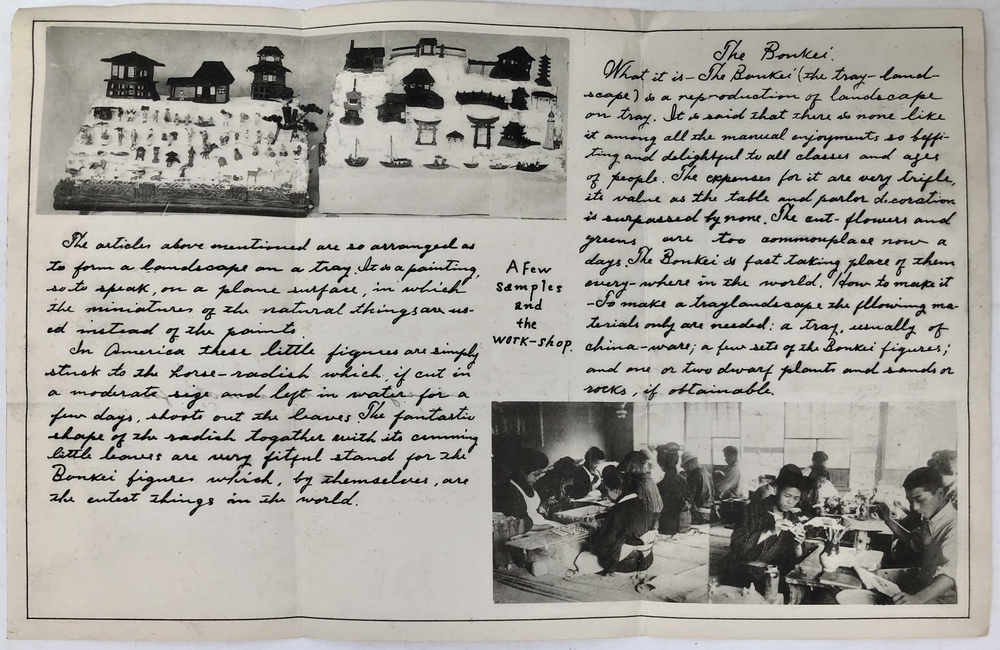 The Bonkei.
What it is – The Bonkei (the tray-land-
scape) is a reproduction of landscape
on tray. It is said that there is none like
it among all the manual enjoyments so befit-
ting and delightful to all classes and ages
of people. The expenses for it are very trifle,
its value as the table and parlor decoration
is surpassed by none. The cut-flowers and
greens are too commonplace now a
days. The Bonkei is fast taking place of them
every-where in the world. How to make it
– To make a traylandscape the fllowing ma-
terials only are needed: a tray, usually of
china-ware; a few sets of the Bonkei figures;
and one or two dwarf plants and sands or
rocks, if obtainable.
The articles above mentioned are so arranged as
to form a landscape on a tray. It is a painting,
so to speak, on a plane surface, in which
the miniatures of the natural things are us-
ed instead of the paints.
In America these little figures are simply
stuck to the horse-radish which, if cut in
a moderate size and left in water for a
few days, shoots out the leaves. The fantastic
shape of the radish togather with its cunning
little leaves are very fitful stand for the
Bonkei figures which, by themselves, are
the cutest things in the world.
A Few
samples
and
the
work-shop.